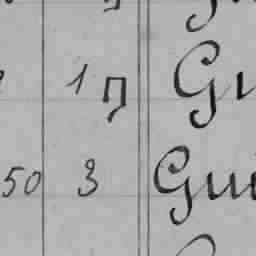 1 Gu
50 3 Gui